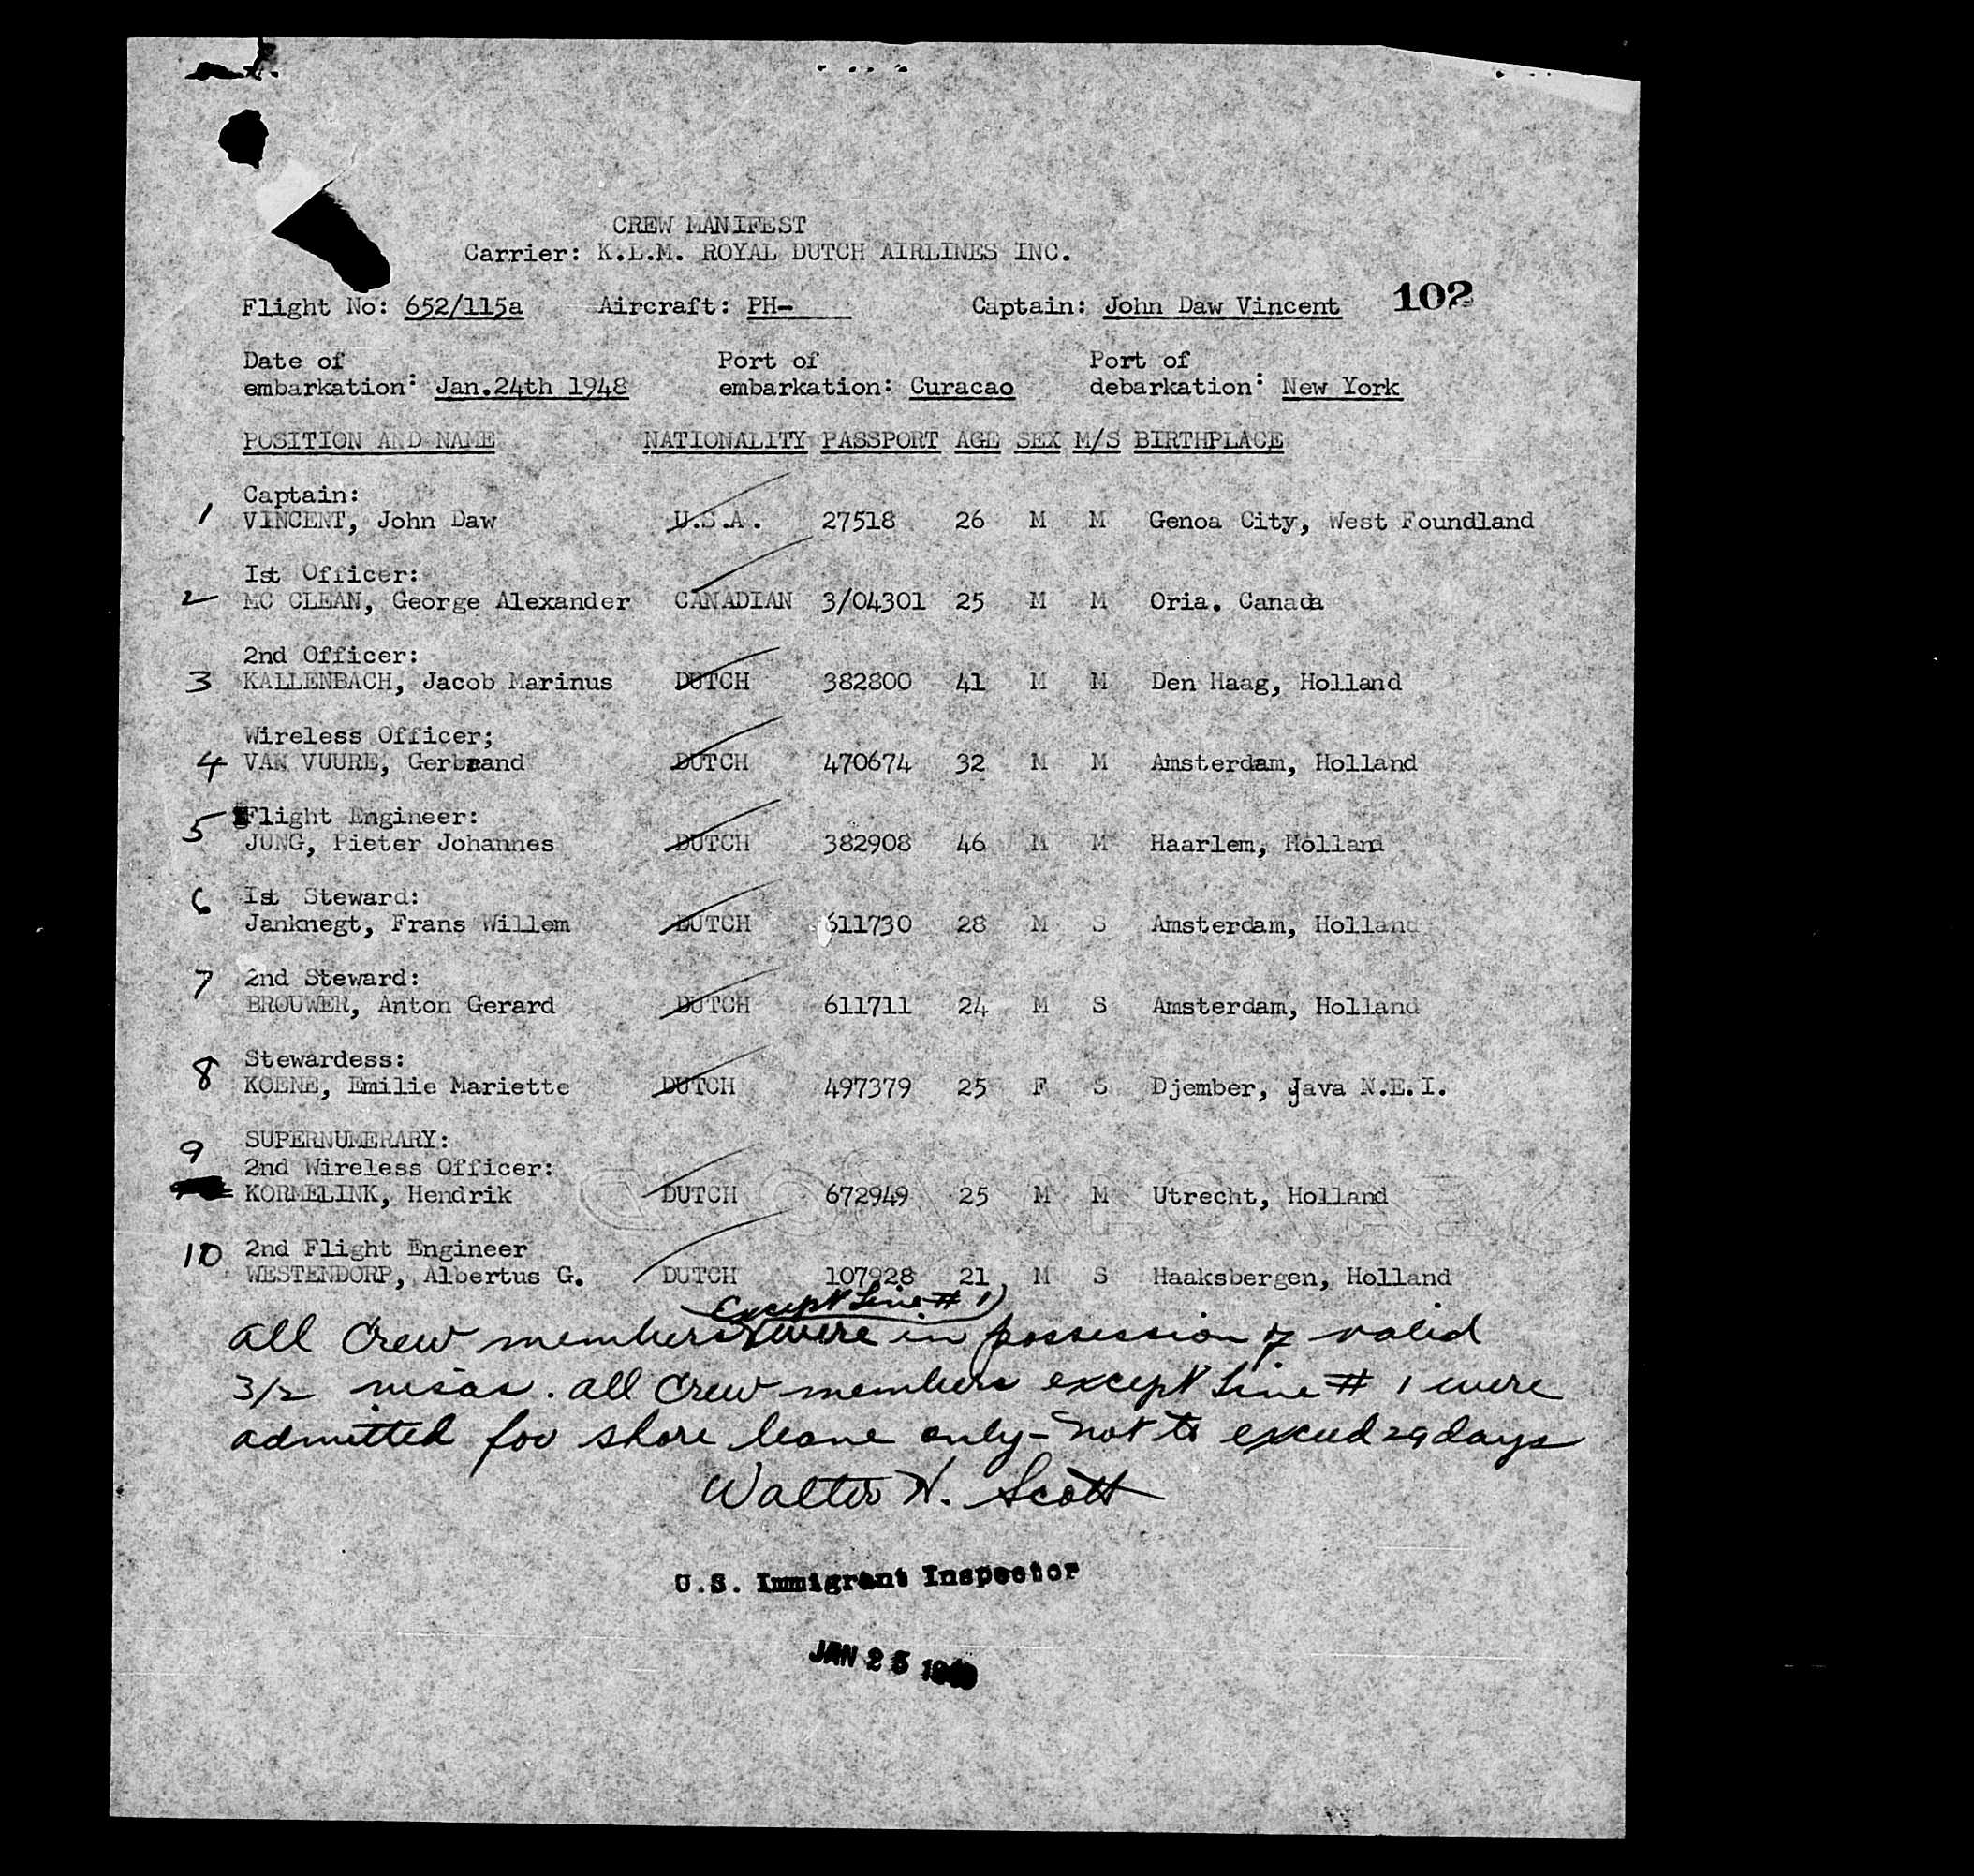 CREW MANIFEST
Carrier: K.L.M. ROYAL DUTCH AIRLINES INC.
Flight No: 652/115a Aircraft: PH- Captain: John Daw Vincent 102
Date of Port of Port of
embarkation: Jan.24th 1948 embarkation: Curacao debarkation: New York
POSITION AND NAME NATIONALITY PASSPORT AGE SEX M/S BIRTHPLACE
Captain:
1 VINCENT, John Daw U.S.A. 27518 26 M M Genoa City, West Foundland
Ist Officer:
2 MC CLEAN, George Alexander CANADIAN 3/04301 25 M M Oria. Canada
2nd Officer:
3 KALLENBACH, Jacob Marinus DUTCH 382800 41 M M Den Haag, Holland
Wireless Officer;
4 VAN VUURE, Gerbrand DUTCH 470674 32 M M Amsterdam, Holland
5 Flight Engineer:
JUNG, Pieter Johannes DUTCH 382908 46 M M Haarlem, Holland
6 Ist Steward:
Janknegt, Frans Willem DUTCH 611730 28 M S Amsterdam, Holland
7 2nd Steward:
BROUWER, Anton Gerard DUTCH 611711 24 M S Amsterdam, Holland
8 Stewardess:
KOENE, Emilie Mariette DUTCH 497379 25 F S Djember, Java N.E.I.
9 SUPERNUMERARY:
2nd Wireless Officer:
KORMELINK, Hendrik DUTCH 672949 25 M M Utrecht, Holland
10 2nd Flight Engineer
WESTENDORP, Albertus G. DUTCH 107928 21 M S Haaksbergen, Holland
Except Line # 1)
All Crew members were in possession of valid
3/2 visas. All Crew members except Line # 1 were
admitted for shore leave only - not to exceed 29 days
Walter H. Scott
U.S. Immigrant Inspector
JAN 25 1948